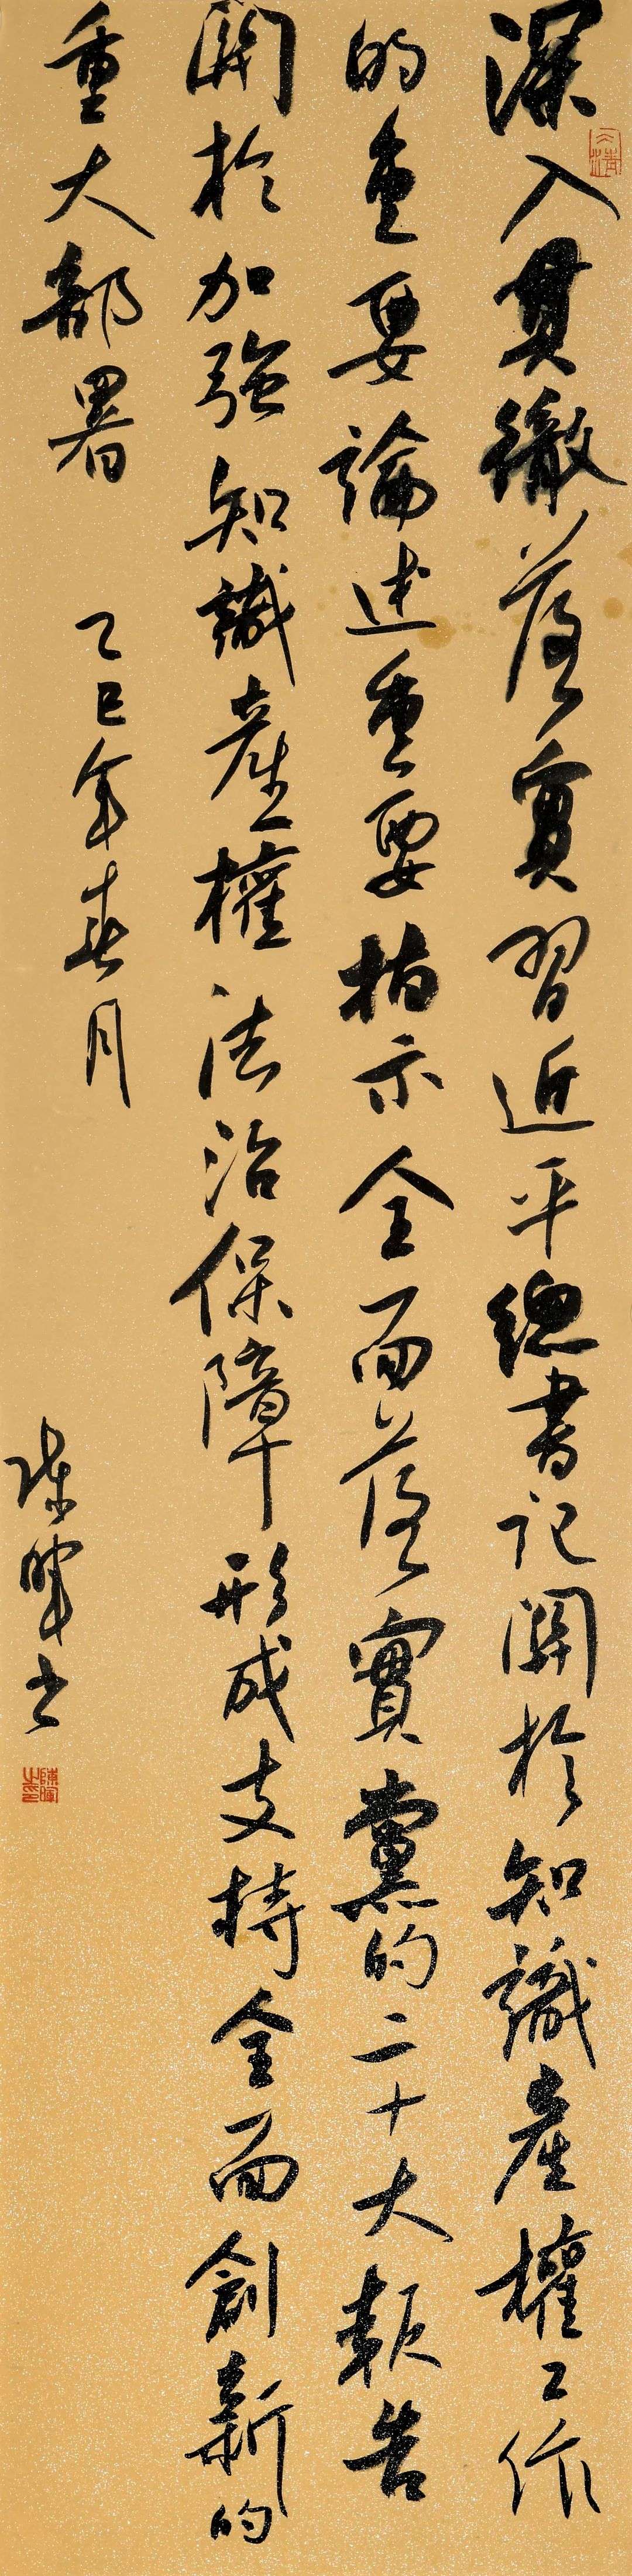 深入貫徹落實習近平總書記關於知識產權工作
的重要論述重要指示全面落實黨的二十大報告
關於加強知識產權法治保障形成支持全面創新的
重大部署
乙巳年春月
陳暉書
陳暉之印